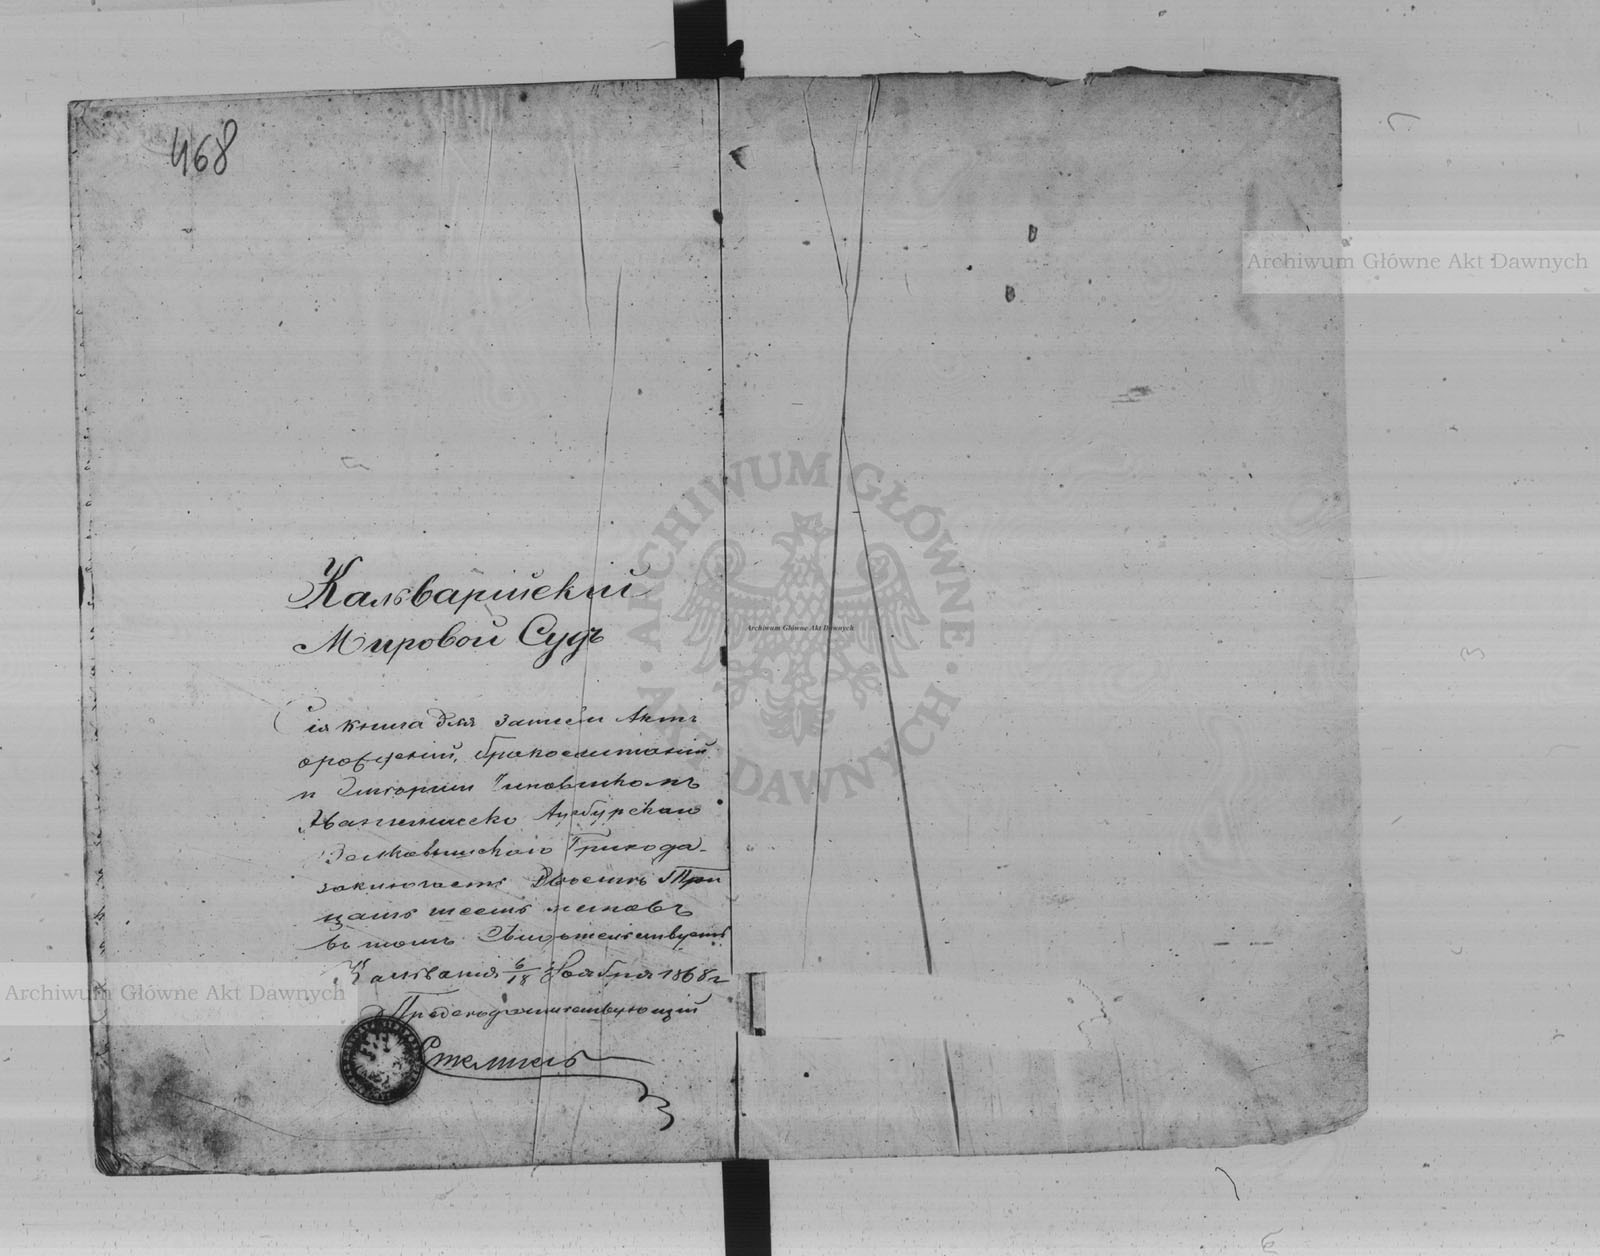 468
Кальварійскій
Мировой Судъ
Сія книга для записи Актъ
о рожденій, бракосочетаній
и Чиновникомъ
Евангелическо Аугсбурскаго
Волковышскаго Прихода
заключаетъ Двѣсти Три
цать шесть листовъ
въ томъ Свидѣтельствуетъ
Кальварія 6/18 Ноября 1868 г
Предсѣдательствующій
Archiwum Główne Akt Dawnych
Archiwum Główne Akt Dawnych
Archiwum Główne Akt Dawnych
ARCHIWUM GŁÓWNE · AKT DAWNYCH ·